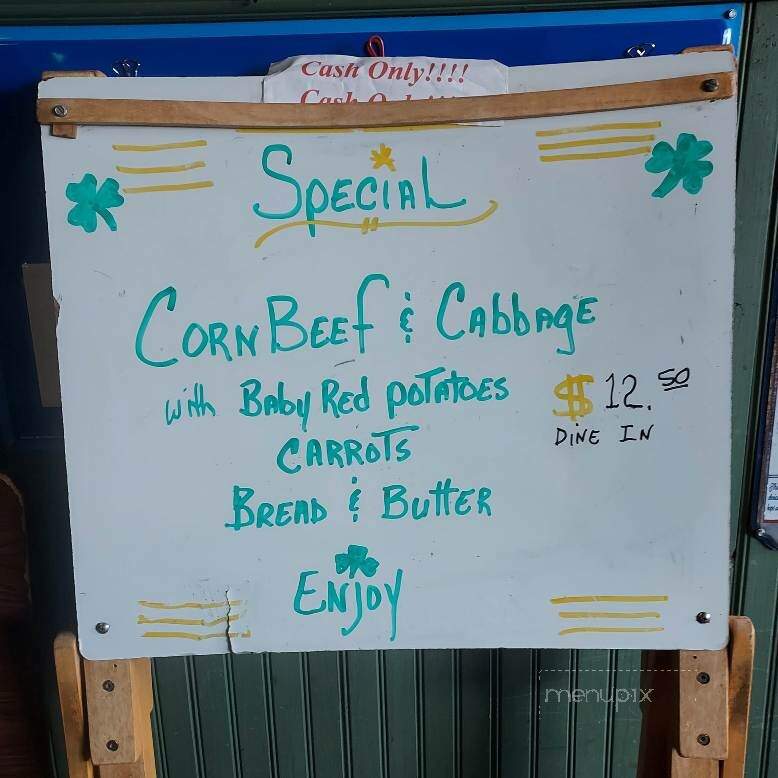 Cash Only!!!!
Cash Only!!!!
Special
Corn Beef & Cabbage
with Baby Red Potatoes
Carrots
Bread & Butter
$12.50
Dine In
Enjoy
menupix